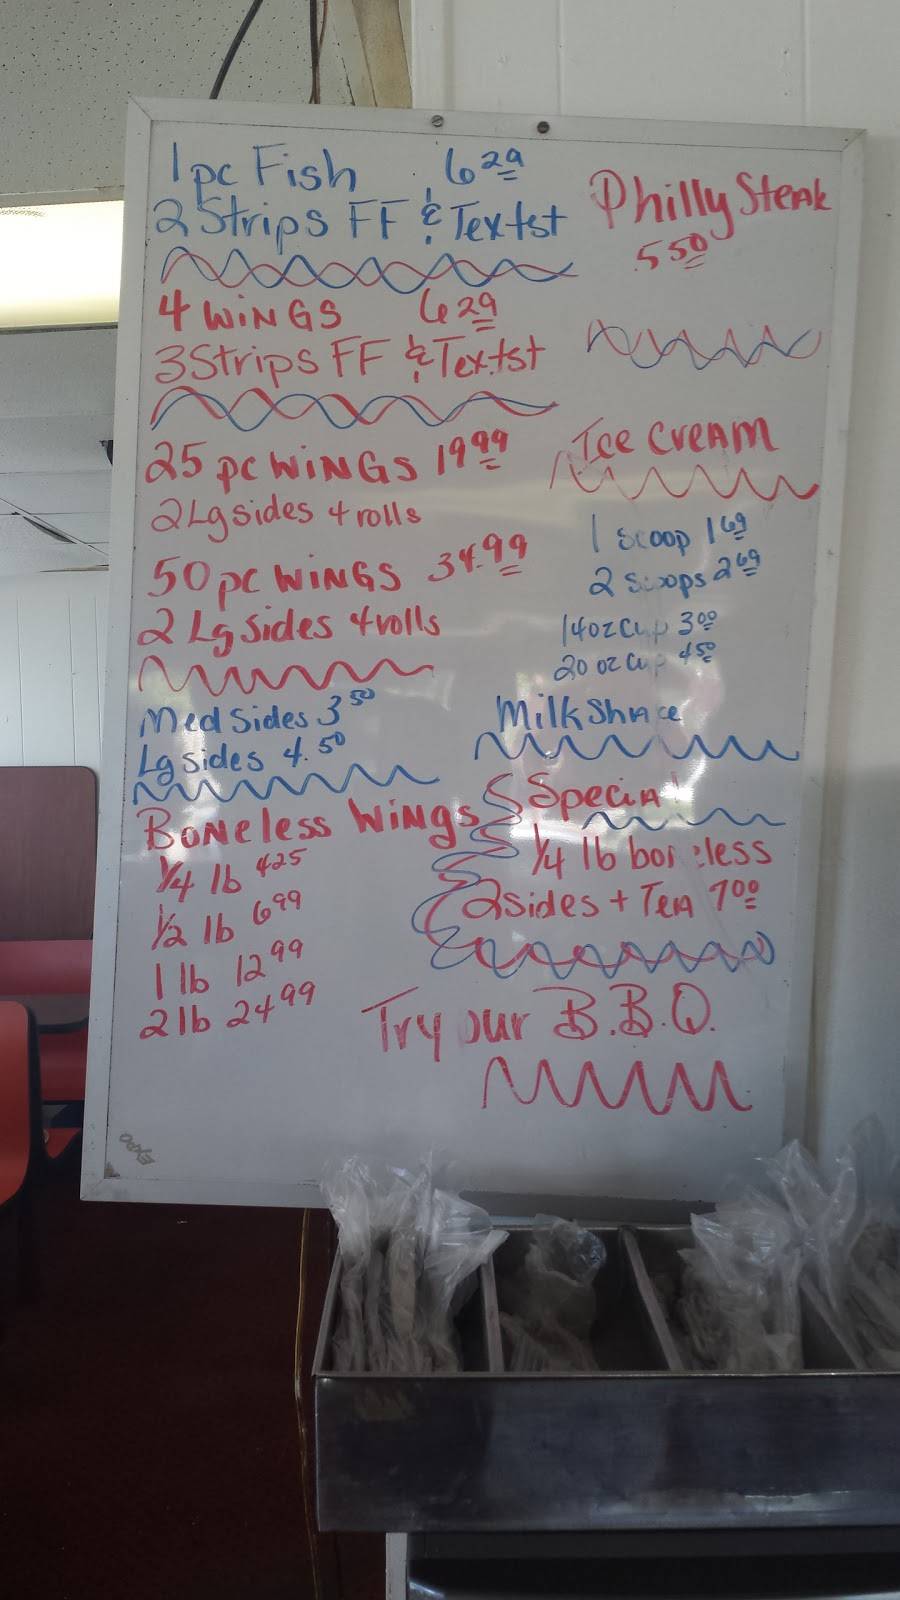 1pc Fish 6 29
2 Strips FF & Tex tst
4 WINGS 6 29
3 Strips FF & Tex. tst
25 pc WINGS 19 99
2 Lg sides 4 rolls
50 pc WINGS 34.99
2 Lg Sides 4 rolls
Med Sides 3 50
Lg sides 4.50
Boneless Wings
1/4 lb 4 25
1/2 lb 6 99
1 lb 12 99
2 lb 24 99
Philly Steak
5 50
Ice Cream
1 scoop 1 69
2 scoops 2 69
14oz cup 3 00
20 oz cup 4 50
Milk Shake
Special
1/4 lb boneless
2 sides + Tea 7 00
Try our B.B.Q.
EXPO